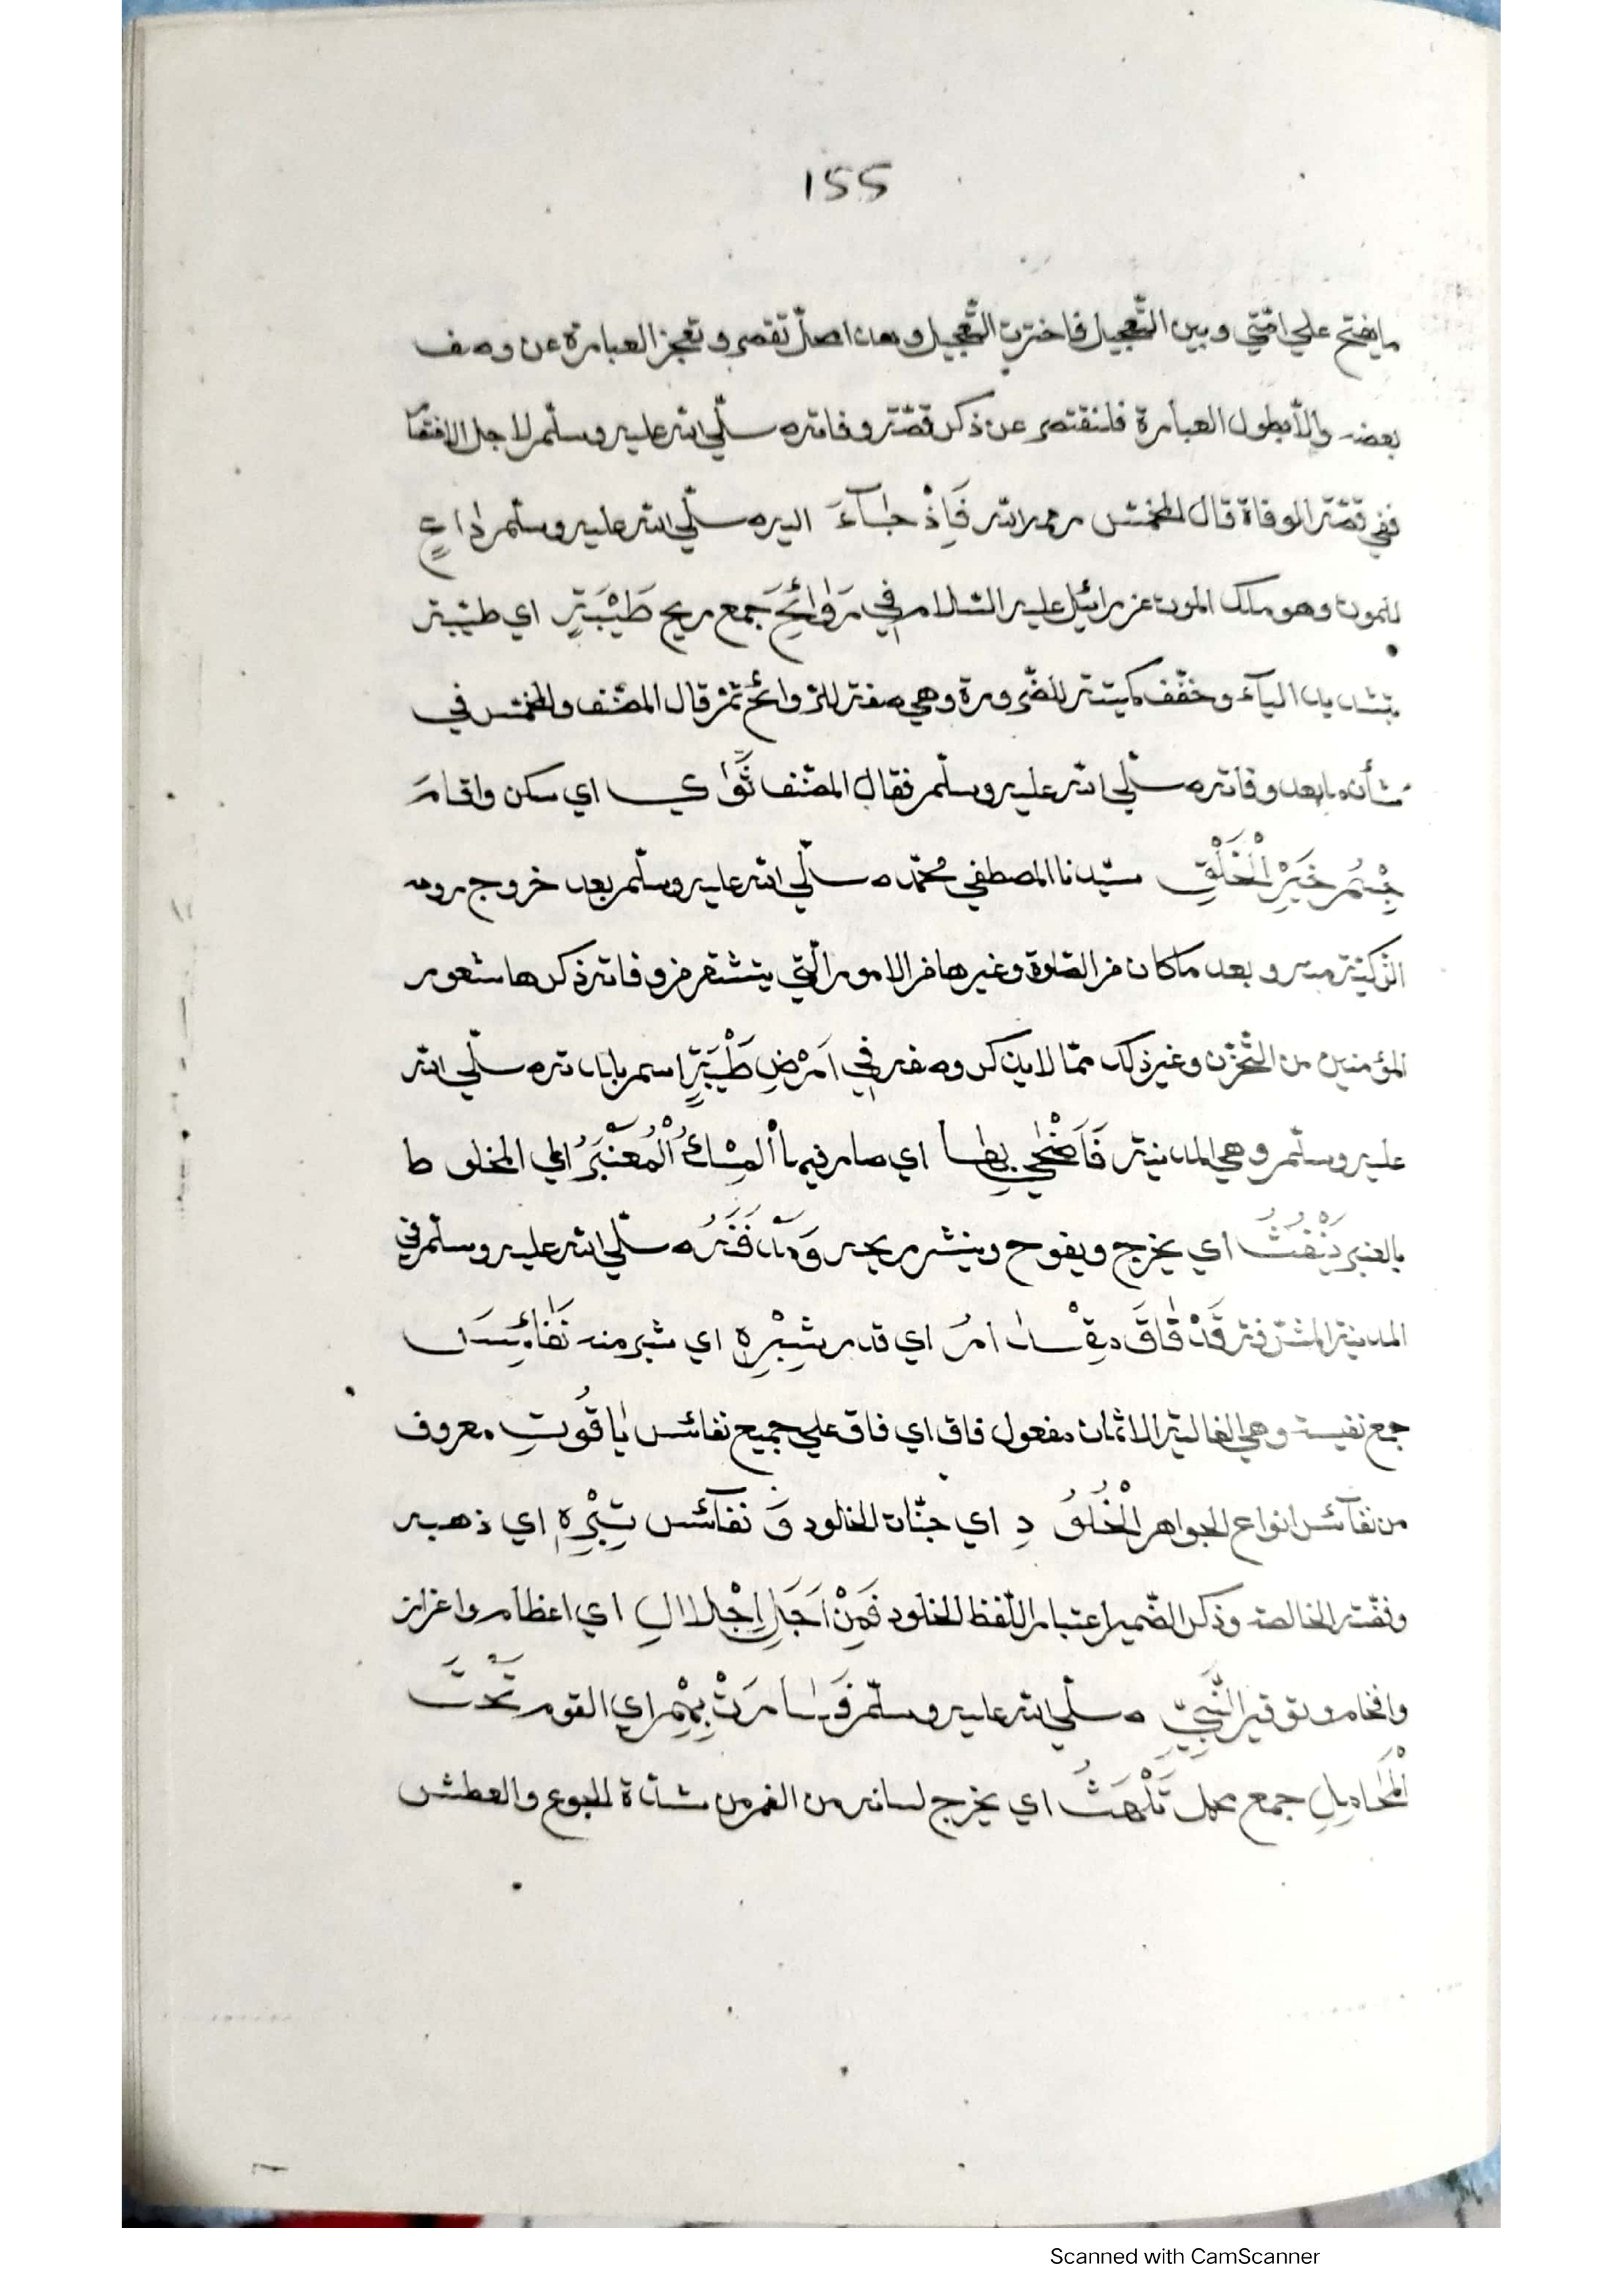 155
ما يفتح علي امّتي وبين التّعجيل فاخترت التّعجيل وهذا اصل تقصر وتعجز العبارة عن وصف
بعضه والّا يطول العبارة فلنقتصر عن ذكر قصّة وفاته صلّي الله عليه وسلّم لاجل الاختصا
ففي قصّة الوفاة قال المخمّس رحمه الله فَاِذْ جَآءَ اليه صلّي الله عليه وسلّم دٰاعٍ
للموت وهو ملك الموت عزرائيل عليه السّلام فِي رَوٰائِحَ جمع ريح طَيْبَةٍ اي طيّبة
بتشديد اليآء وخفّف كميتة للضّرورة وهي صفة للرّوائح ثمّ قال المصنّف والمخمّس في
شأنه بعد وفاته صلّي الله عليه وسلّم فقال المصنّف ثَوٰي اي سكن واقام
جِسْمُ خَيْرِ الْخَلْقِ سيّدنا المصطفي محمّد صلّي الله عليه وسلّم بعد خروج روحه
الزّكيّة منه وبعد ما كان من الصّلوة وغيرها من الامور الّتي ينشقر من وفاته ذكرها شعور
المؤمنين من التّحزّن وغير ذلك ممّا لا يذكر وصفه فِي اَرْضِ طَيْبَةٍ اسم بلدته صلّي الله
عليه وسلّم وهي المدينة فَاَضْحٰي بِهٰا اي صار فيها اَلْمِسْكُ الْمُعَنْبَرُ اي المخلوط
بالعنبر يَنْفُثُ اي يخرج ويفوح وينشر ريحه وَمَدْفَنُهُ صلّي الله عليه وسلّم في
المدينة المشرّفة قَدْ فٰاقَ مِقْدٰارُ اي قدر شِبْرِهِ اي شبر منه نَفٰائِسَ
جمع نفيسة وهي الغالية الاثمان مفعول فاق اي فاق علي جميع نفائس يٰاقُوتِ معروف
من نفآئس انواع الجواهر الْخُلُودِ اي جنّات الخلود وَ نفآئس تِبْرِهِ اي ذهبه
وفضّته الخالصة وذكر الضّمير اعتبارا للّفظ الخلود فَمِنْ اَجَلِ اِجْلالِ اي اعظام واعزاز
وافخام وتوقير النَّبِيِّ صلّي الله عليه وسلّم فَسٰارَتْ بِهِمْ اي القوم تَحْتَ
الْمَحٰامِلِ جمع محمل تَلْهَثُ اي يخرج لسانه من الفم من شدّة الجوع والعطش
Scanned with CamScanner